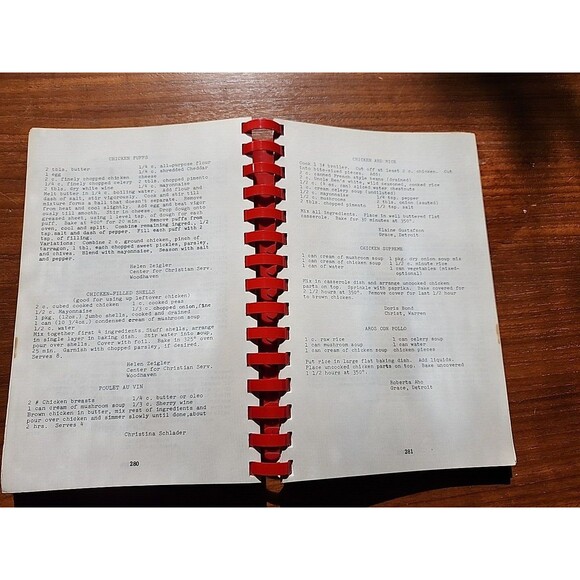 CHICKEN PUFFS
2 tbls. butter 1/4 c. all-purpose flour
1 egg 1/4 c. shredded Cheddar
2 c. finely chopped chicken cheese
1/4 c. finely chopped celery 2 tbls. pimiento
2 tbls. dry white wine 1/4 c. mayonnaise
Melt butter in 1/4 c. boiling water. Add flour and
dash of salt, stir vigorously. Cook and stir till
mixture forms a ball that doesn't separate. Remove
from heat and cool slightly. Add egg and beat vigor
ously till smooth. Stir in cheese. Drop dough onto
greased sheet, using 1 level tsp. of dough for each
puff. Bake at 400° for 20 min. Remove puffs from
oven, cool and split. Combine remaining ingred. 1/2
tsp. salt and dash of pepper. Fill each puff with 2
tsp. of filling.
Variations: Combine 2 c. ground chicken, pinch of
tarragon, 1 tbl. each chopped sweet pickles, parsley,
and chives. Blend with mayonnaise. Season with salt
and pepper.
Helen Zeigler
Center for Christian Serv.
Woodhaven
CHICKEN-FILLED SHELLS
(good for using up leftover chicken)
2 c. cubed cooked chicken 1 c. cooked peas
1/2 c. Mayonnaise 1/3 c. chopped onion, fine
1 pkg. (12oz.) jumbo shells, cooked and drained
1 can (10 3/4oz.) condensed cream of mushroom soup
1/2 c. water
Mix together first 4 ingredients. Stuff shells, arrange
in single layer in baking dish. Stir water into soup,
pour over shells. Cover with foil. Bake in 325° oven
25 min. Garnish with chopped parsley, if desired.
Serves 8.
Helen Zeigler
Center for Christian Serv.
Woodhaven
POULET AU VIN
2 # Chicken breasts 1/4 c. butter or oleo
1 can cream of mushroom soup 1/3 c. Sherry wine
Brown chicken in butter, mix rest of ingredients and
pour over chicken and simmer slowly until done, about
2 hrs. Serves 4
Christina Schlader
280
CHICKEN AND RICE
Cook 1 3# broiler. Cut off at least 2 c. chicken. Cut
into bite-sized pieces. Add:
2 c. canned French style green beans (drained)
1 c. sliced water chestnuts
1 can cream celery soup (undiluted)
1/2 c. mayonnaise
1/2 c. mushrooms 1/4 tsp. pepper
2 tbls. diced pimento 2 tbls. onion (sauted)
1/2 tsp. salt
Mix all ingredients. Place in well buttered flat
casserole. Bake for 30 minutes at 350°.
Elaine Gustafson
Grace, Detroit
CHICKEN SUPREME
1 can cream of mushroom soup 1 pkg. dry onion soup mix
1 can cream of chicken soup 1 1/2 c. minute rice
1 can of water 1 can vegetables (mixed-
optional)
Mix in casserole dish and arrange uncooked chicken
parts on top. Sprinkle with paprika. Bake covered for
2 1/2 hours at 350°. Remove cover for last 1/2 hour
to brown chicken.
Doris Bond
Christ, Warren
AROS CON POLLO
1 c. raw rice 1 can celery soup
1 can cream of mushroom soup 1 can water
1 can cream of chicken soup chicken pieces
Put rice in large flat baking dish. Add liquids.
Place uncooked chicken parts on top. Bake uncovered
1 1/2 hours at 350°.
Roberta Rho
Grace, Detroit
281